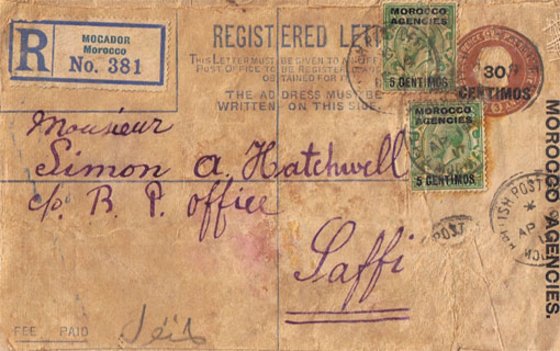 R
MOGADOR
Morocco
No. 381
REGISTERED LETTER
THIS LETTER MUST BE GIVEN TO AN OFF
POST OFFICE TO BE REGISTERED AN
OBTAINED FOR IT
THE ADDRESS MUST BE
WRITTEN ON THIS SIDE.
MOROCCO
AGENCIES
5 CENTIMOS
30
CENTIMOS
MOROCCO
AGENCIES
5 CENTIMOS
MOROCCO AGENCIES.
Monsieur
Simon A. Hatchwell
c/o B. P. Office
Saffi
BRITISH POST
AP
POST
FEE PAID